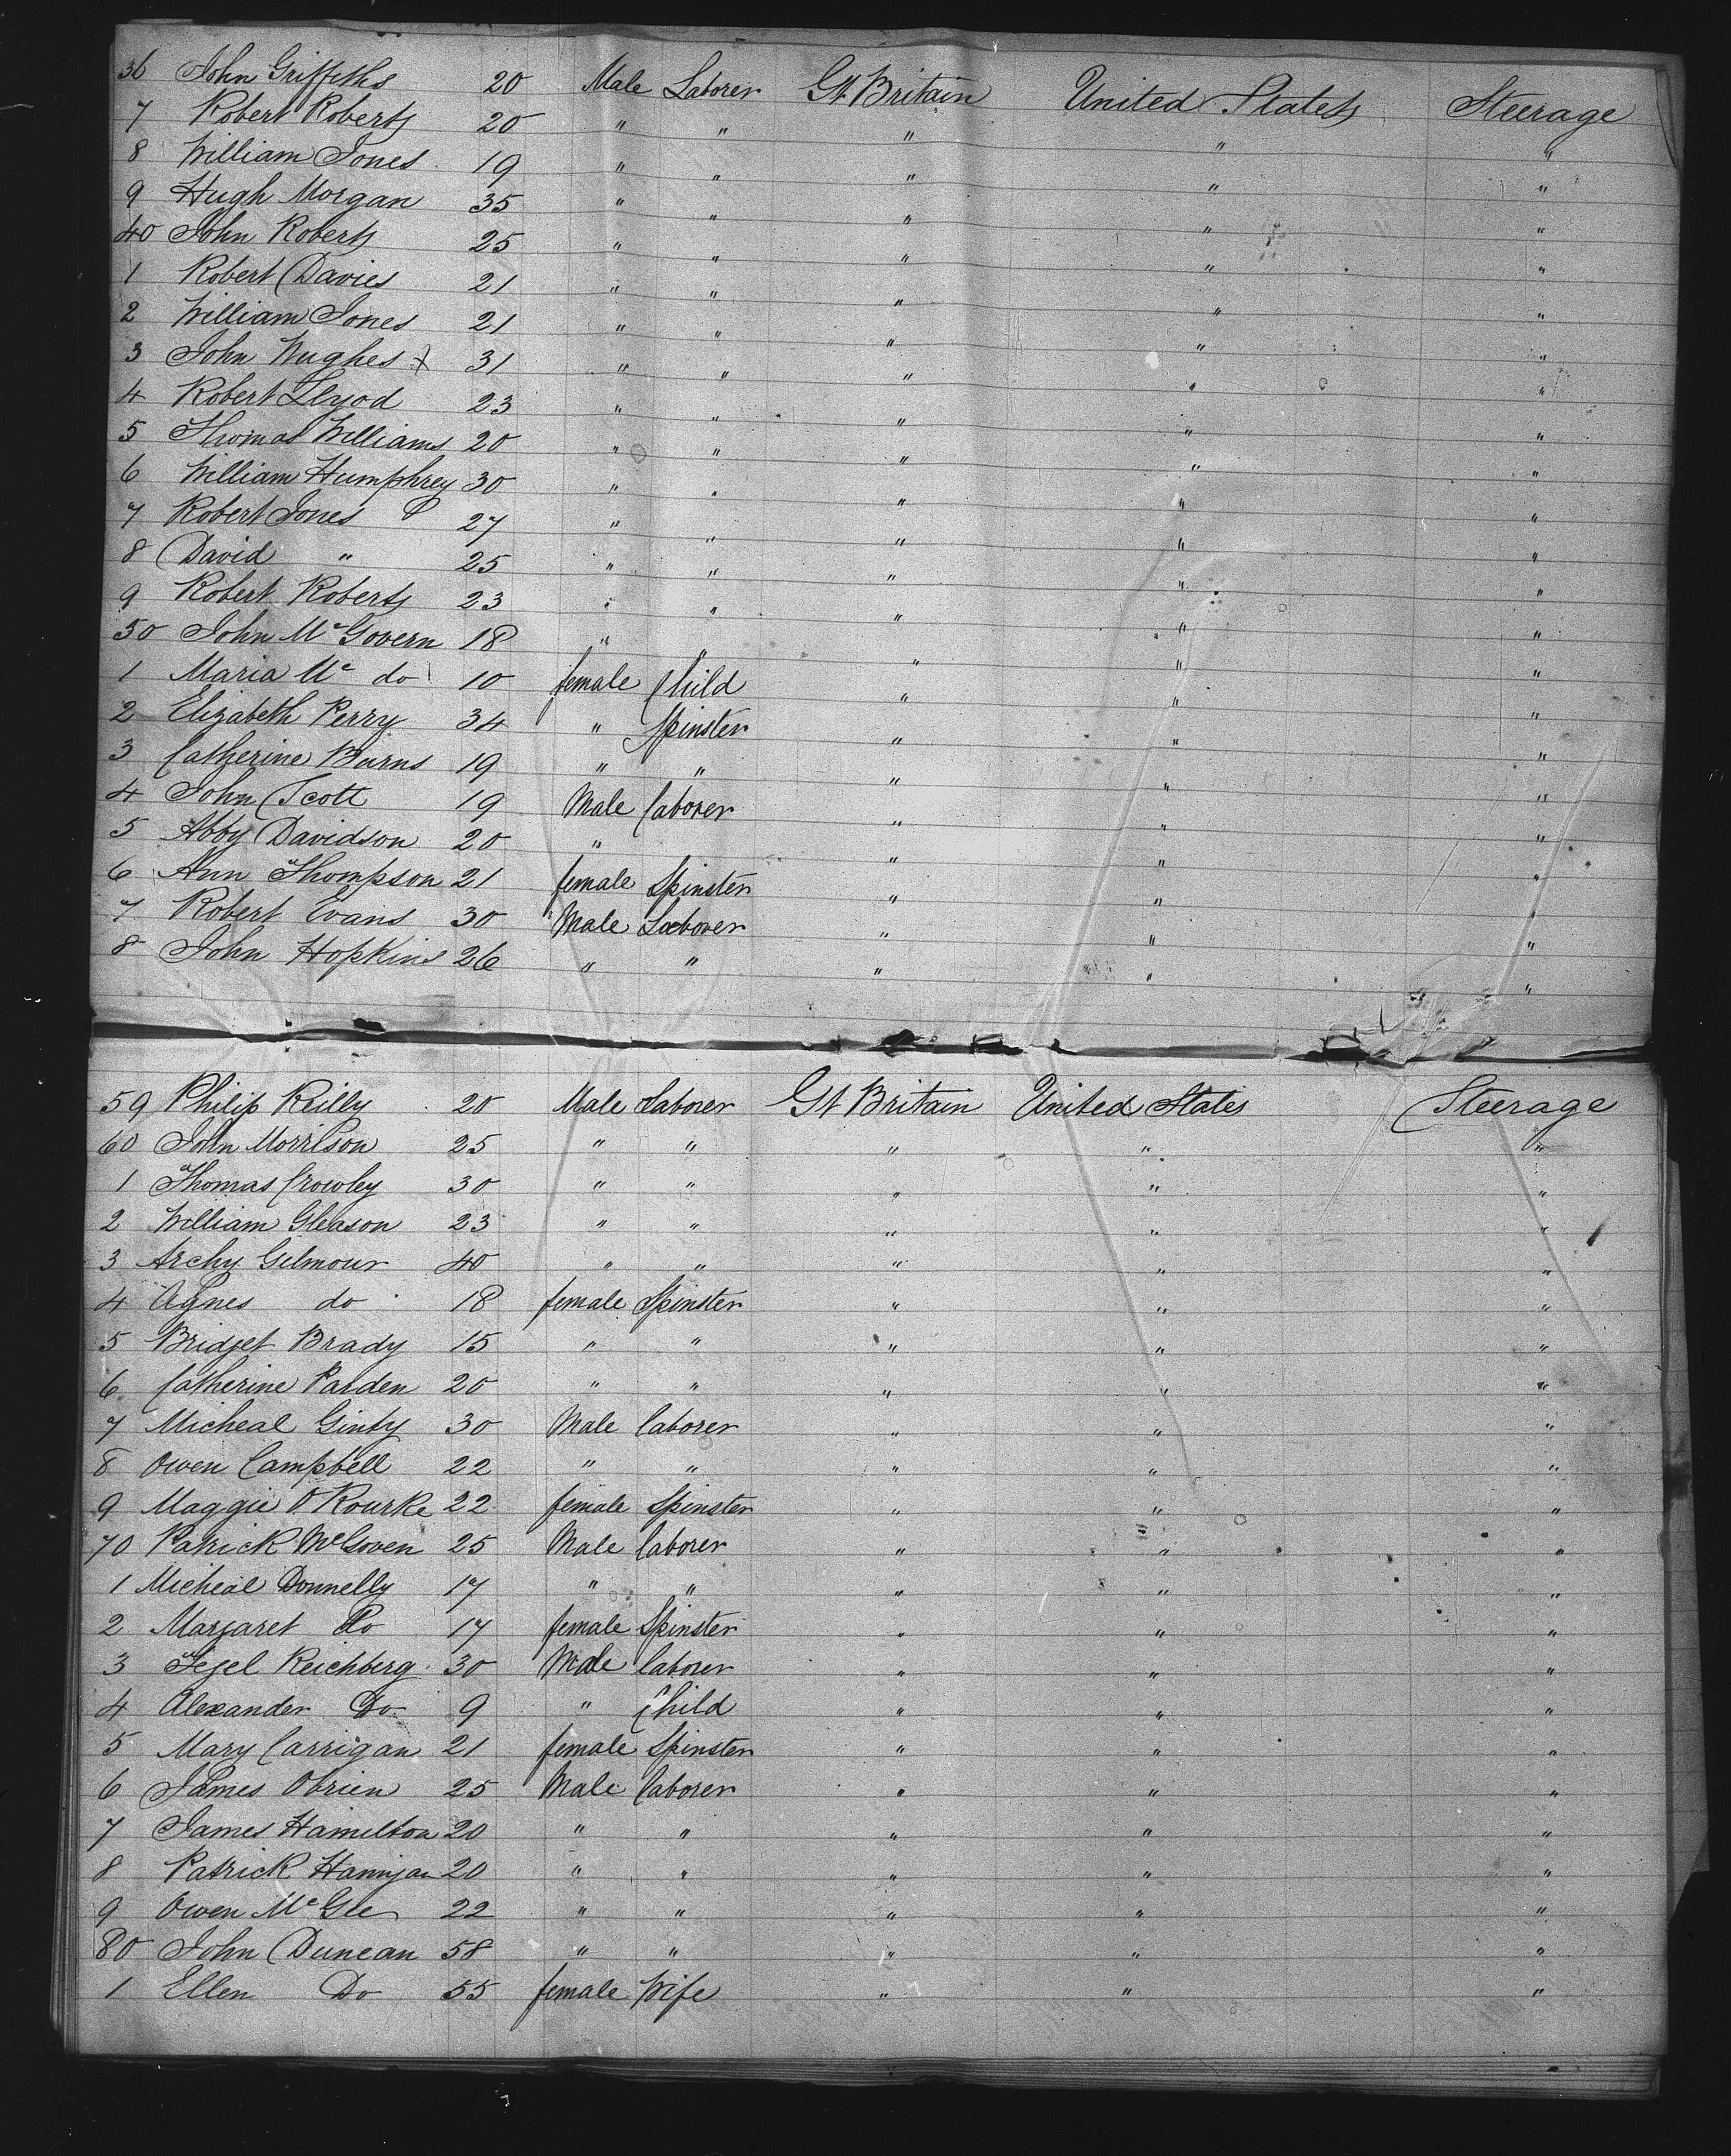 36 John Griffiths 20 Male Laborer Gt Britain United States Steerage
7 Robert Roberts 20 " " " " "
8 William Jones 19 " " " " "
9 Hugh Morgan 35 " " " " "
40 John Roberts 25 " " " " "
1 Robert Davies 21 " " " " "
2 William Jones 21 " " " " "
3 John Hughes 31 " " " " "
4 Robert Llyod 23 " " " " "
5 Thomas Williams 20 " " " " "
6 William Humphrey 30 " " " " "
7 Robert Jones 27 " " " " "
8 David " 25 " " " " "
9 Robert Roberts 23 " " " " "
50 John McGovern 18 " " " " "
1 Maria Mc do 10 female Child " " "
2 Elizabeth Perry 34 " Spinster " " "
3 Catherine Burns 19 " " " " "
4 John Scott 19 Male laborer " " "
5 Abby Davidson 20 " " " "
6 Ann Thompson 21 female Spinster " " "
7 Robert Evans 30 Male Laborer " " "
8 John Hopkins 26 " " " " "
59 Philip Reilly 20 Male Laborer Gt Britain United States Steerage
60 John Morrison 25 " " " " "
1 Thomas Crowley 30 " " " " "
2 William Gleason 23 " " " " "
3 Archy Gilmour 40 " " " " "
4 Agnes do 18 female Spinster " " "
5 Bridget Brady 15 " " " " "
6 Catherine Parden 20 " " " " "
7 Micheal Ginty 30 Male laborer " " "
8 Owen Campbell 22 " " " " "
9 Maggie O'Rourke 22 female Spinster " " "
70 Patrick McGoven 25 Male laborer " " "
1 Micheal Donnelly 17 " " " " "
2 Margaret Do 17 female Spinster " " "
3 Reichberg 30 Male laborer " " "
4 Alexander Do 9 " Child " " "
5 Mary Carrigan 21 female Spinster " " "
6 James Obrien 25 Male laborer " " "
7 James Hamilton 20 " " " " "
8 Patrick 20 " " " " "
9 Owen McGle 22 " " " " "
80 John Duncan 58 " " " " "
1 Ellen Do 55 female Wife " " "